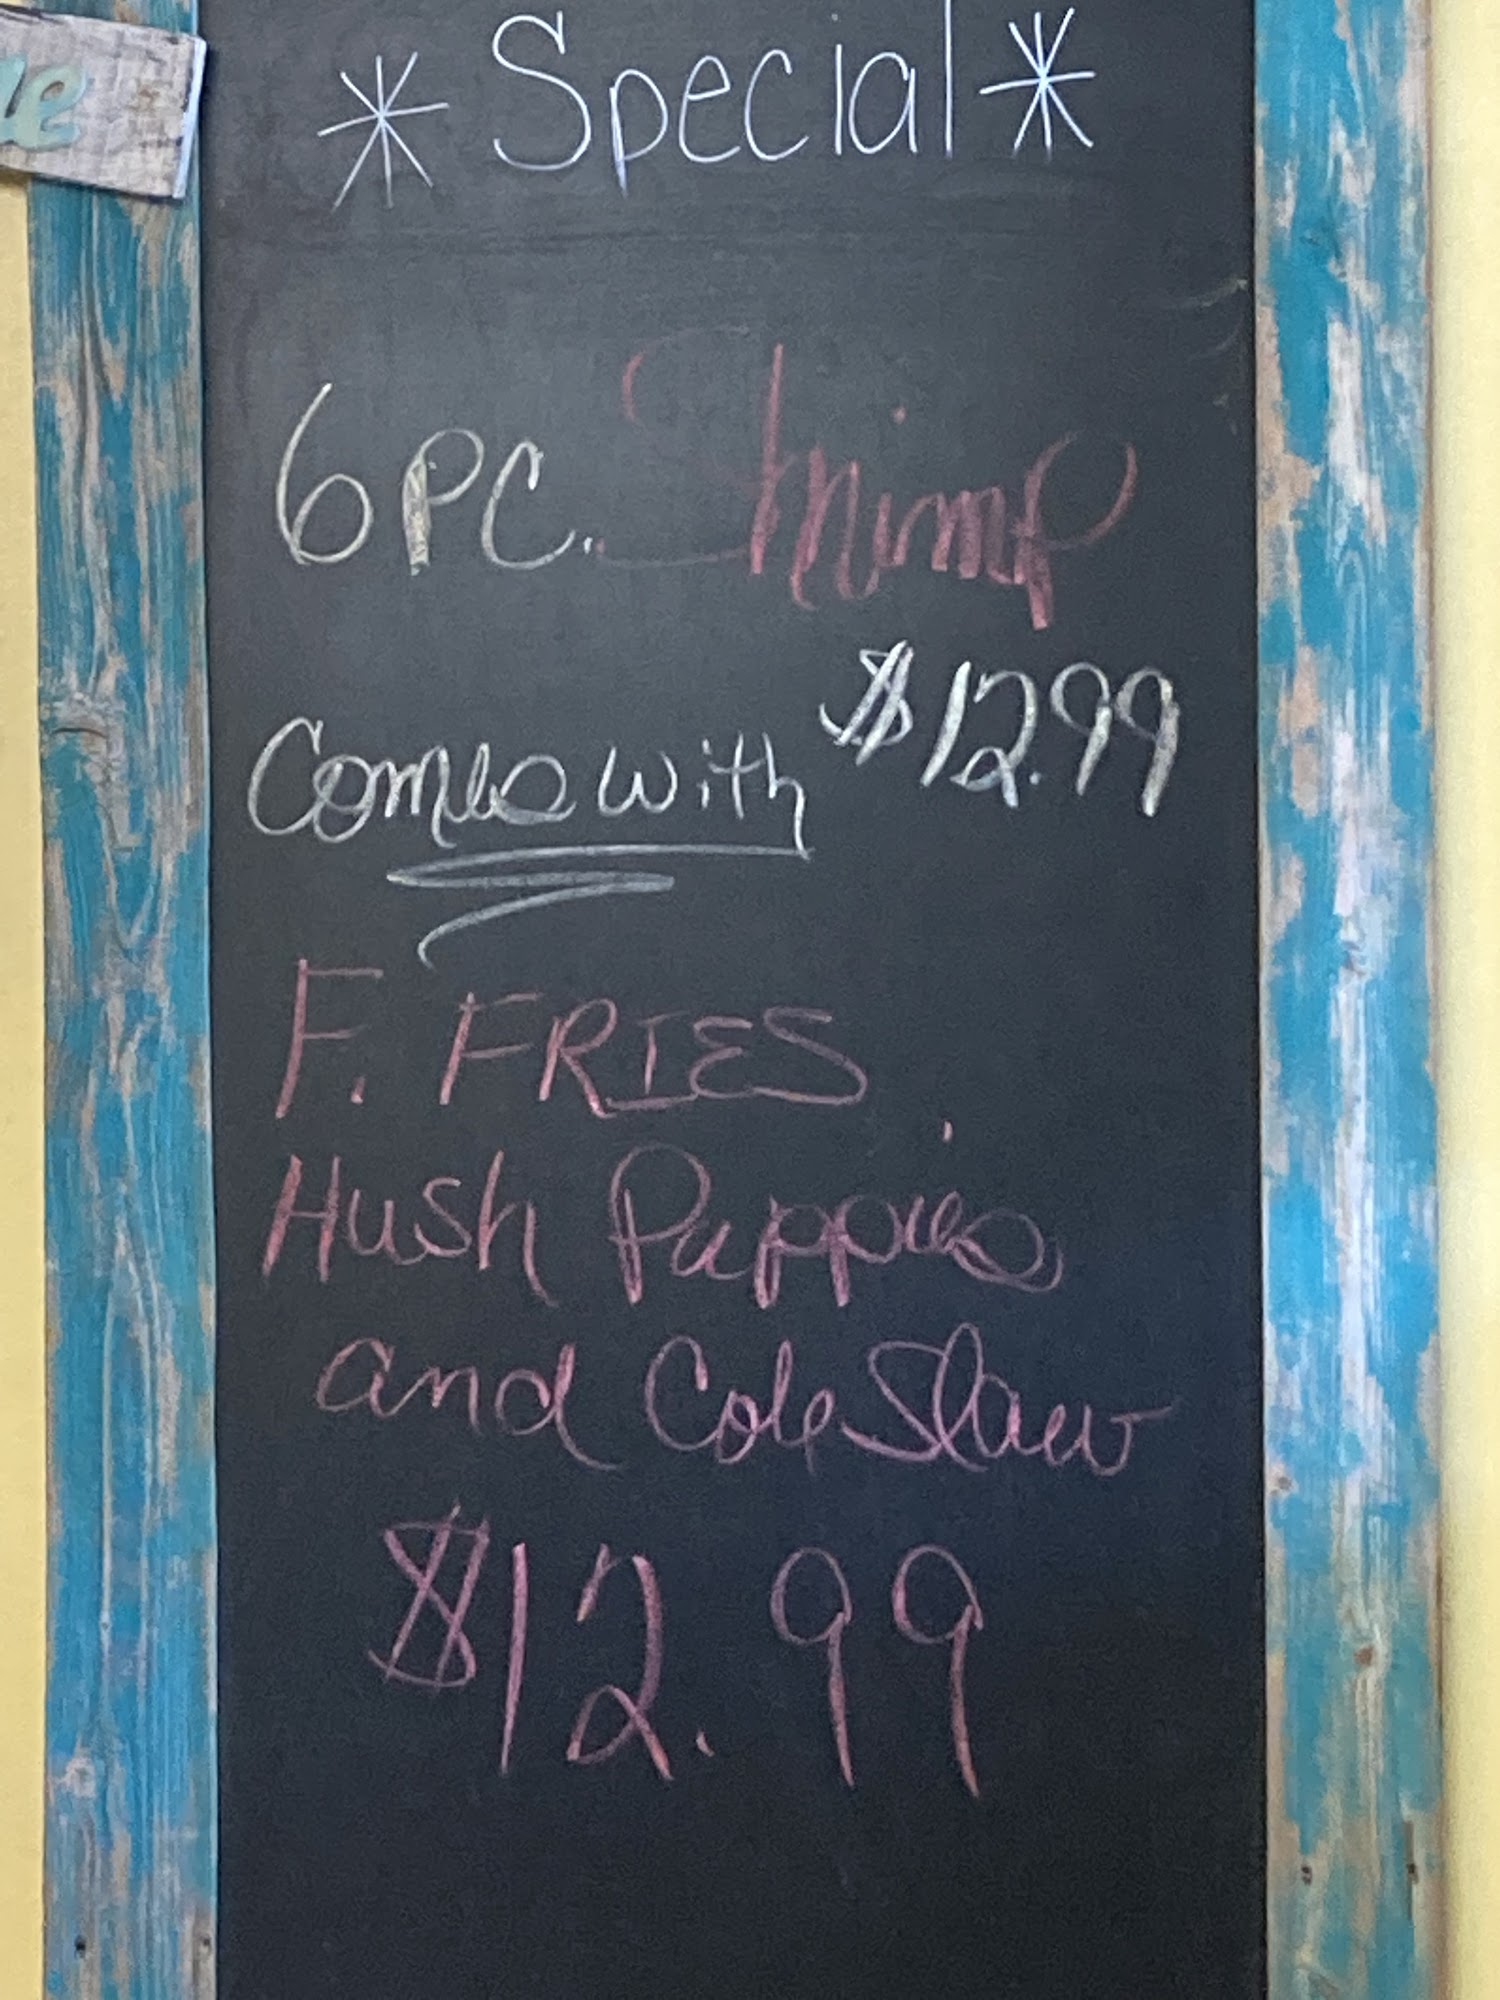 * Special *
6 PC. Shrimp
$12.99
Comes with
F. FRIES
Hush Puppies
and Cole Slaw
$12.99